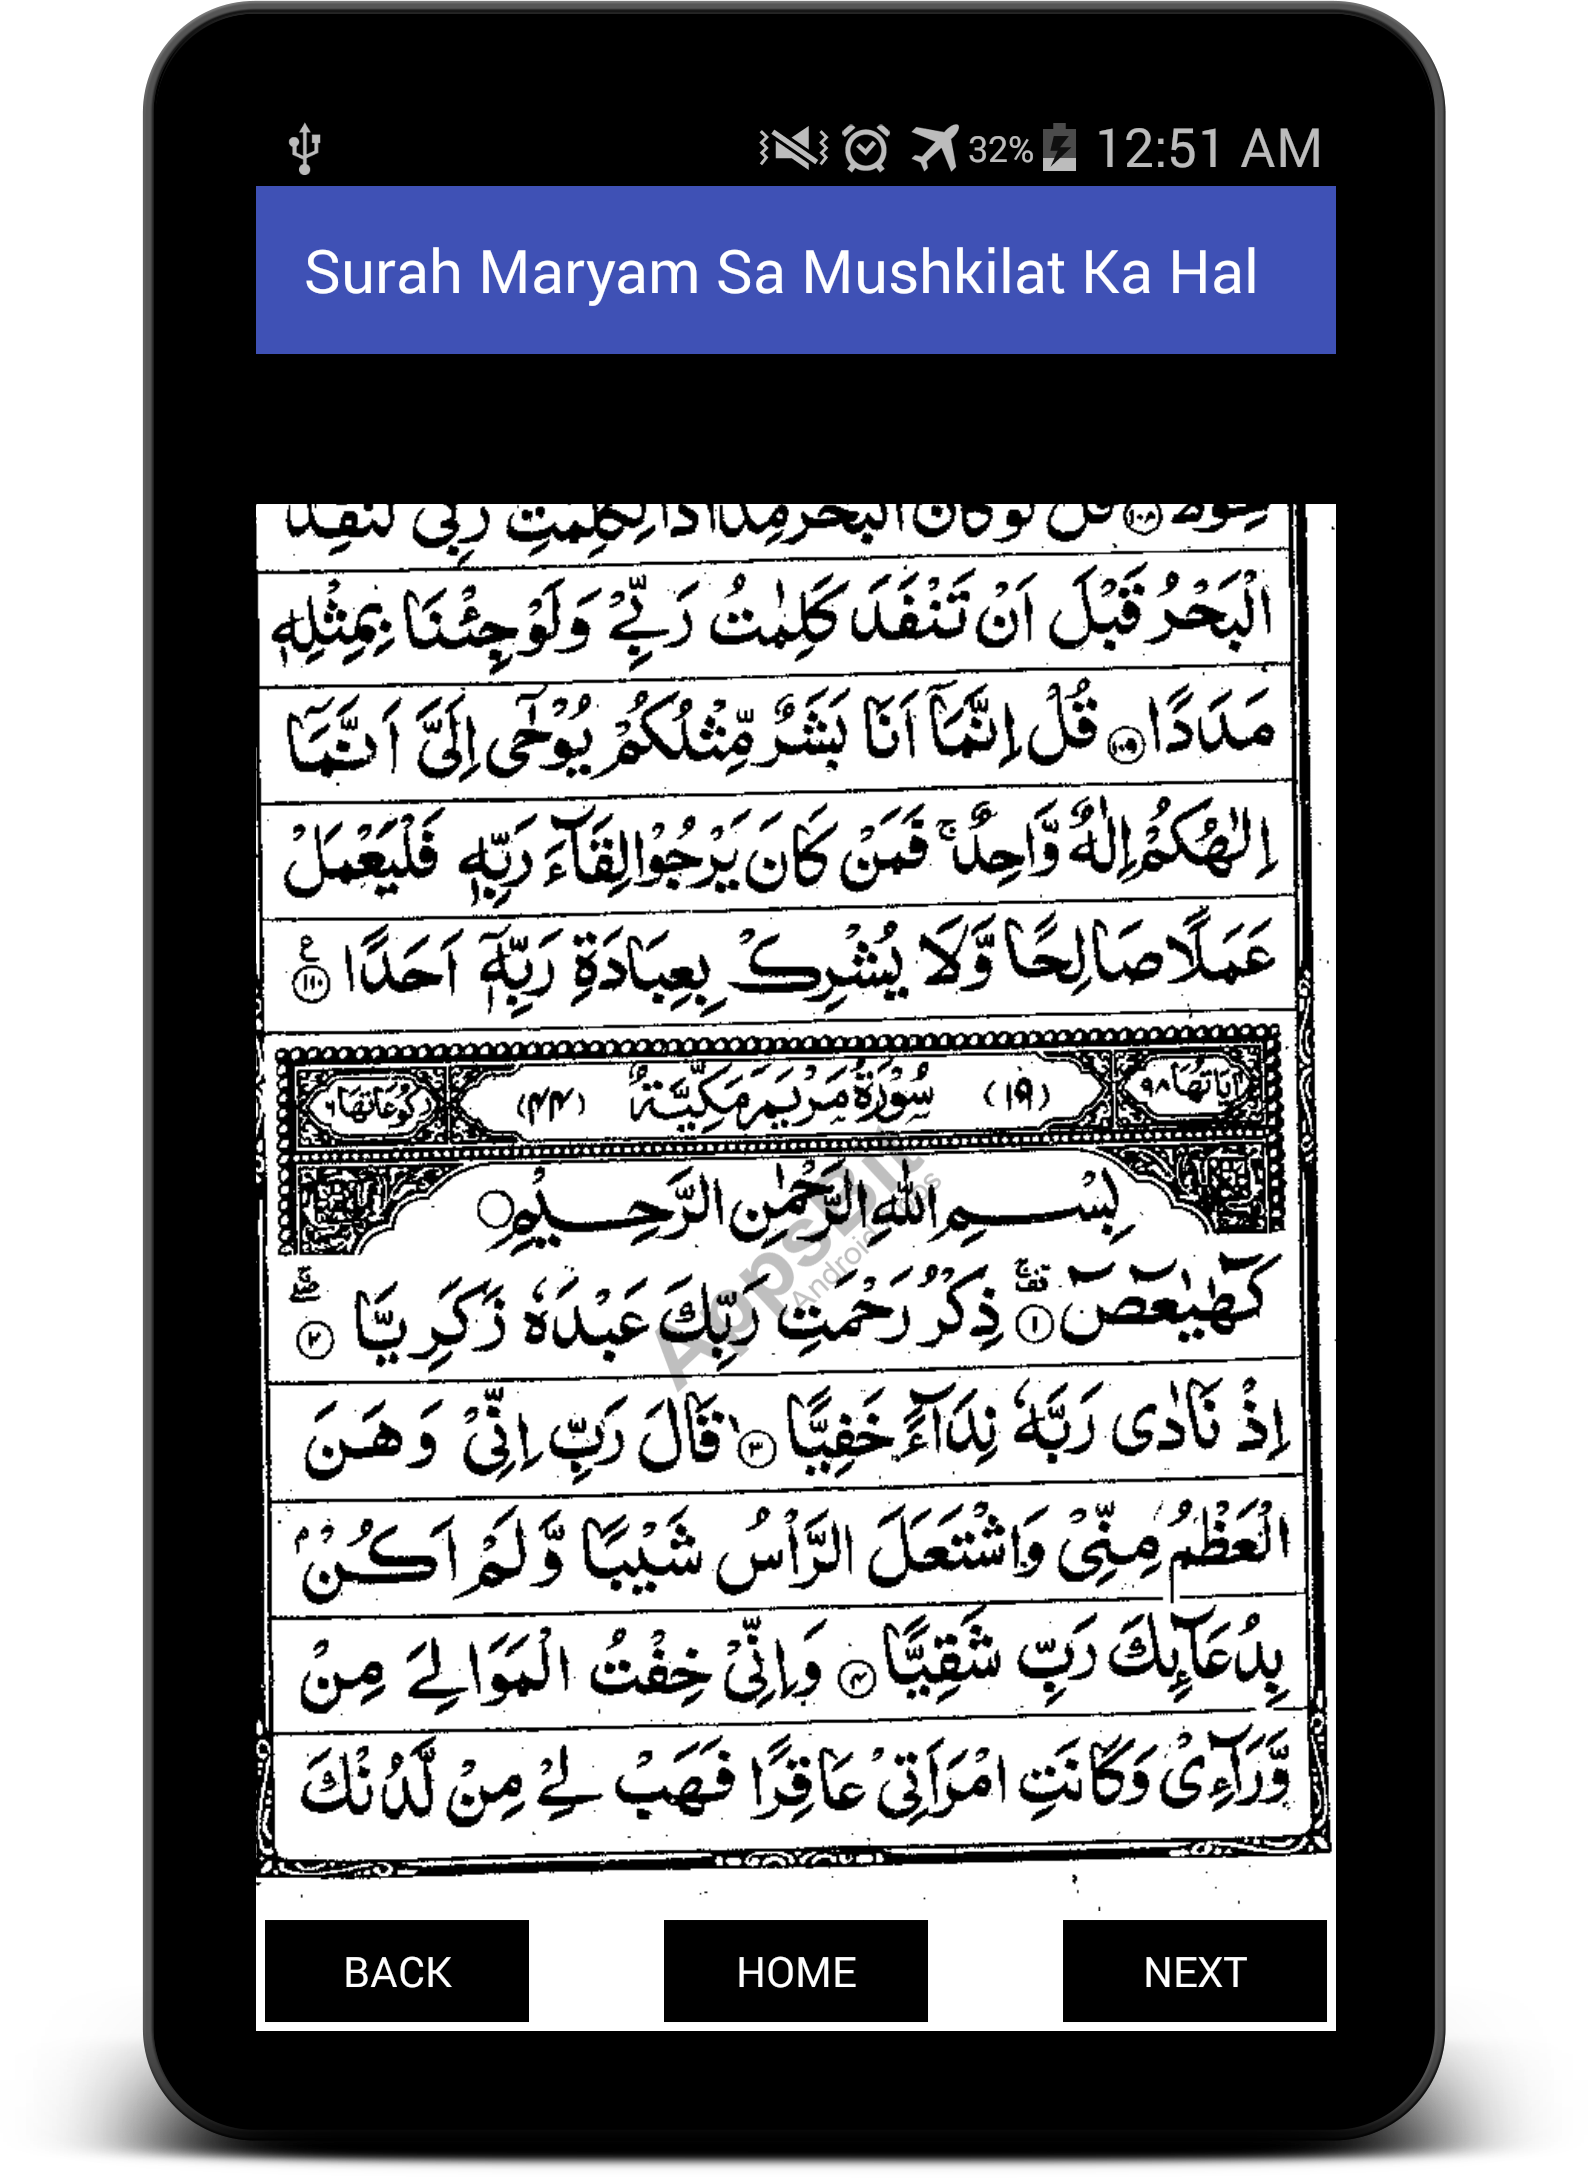 32% 12:51 AM
Surah Maryam Sa Mushkilat Ka Hal
حِوَلًا ۝۱۰۸ قُلْ لَّوْ كَانَ الْبَحْرُ مِدَادًا لِّكَلِمٰتِ رَبِّیْ لَنَفِدَ
الْبَحْرُ قَبْلَ اَنْ تَنْفَدَ كَلِمٰتُ رَبِّیْ وَلَوْ جِئْنَا بِمِثْلِهٖ
مَدَدًا ۝۱۰۹ قُلْ اِنَّمَاۤ اَنَا بَشَرٌ مِّثْلُكُمْ یُوْحٰۤی اِلَیَّ اَنَّمَاۤ
اِلٰهُكُمْ اِلٰهٌ وَّاحِدٌ ۚ فَمَنْ كَانَ یَرْجُوْا لِقَآءَ رَبِّهٖ فَلْیَعْمَلْ
عَمَلًا صَالِحًا وَّلَا یُشْرِكْ بِعِبَادَةِ رَبِّهٖۤ اَحَدًا ۝۱۱۰ ع
اٰیَاتُهَا ۹۸ (۱۹) سُوْرَةُ مَرْیَمَ مَكِّیَّةٌ (۴۴) رُكُوْعَاتُهَا ۶
بِسْمِ اللّٰهِ الرَّحْمٰنِ الرَّحِیْمِ
كٓهٰیٰعٓصٓ ۝۱ ذِكْرُ رَحْمَتِ رَبِّكَ عَبْدَهٗ زَكَرِیَّا ۝۲
اِذْ نَادٰی رَبَّهٗ نِدَآءً خَفِیًّا ۝۳ قَالَ رَبِّ اِنِّیْ وَهَنَ
الْعَظْمُ مِنِّیْ وَاشْتَعَلَ الرَّاْسُ شَیْبًا وَّلَمْ اَكُنْۢ
بِدُعَآئِكَ رَبِّ شَقِیًّا ۝۴ وَاِنِّیْ خِفْتُ الْمَوَالِیَ مِنْ
وَّرَآءِیْ وَكَانَتِ امْرَاَتِیْ عَاقِرًا فَهَبْ لِیْ مِنْ لَّدُنْكَ
AppsBit
Android Apps
BACK HOME NEXT